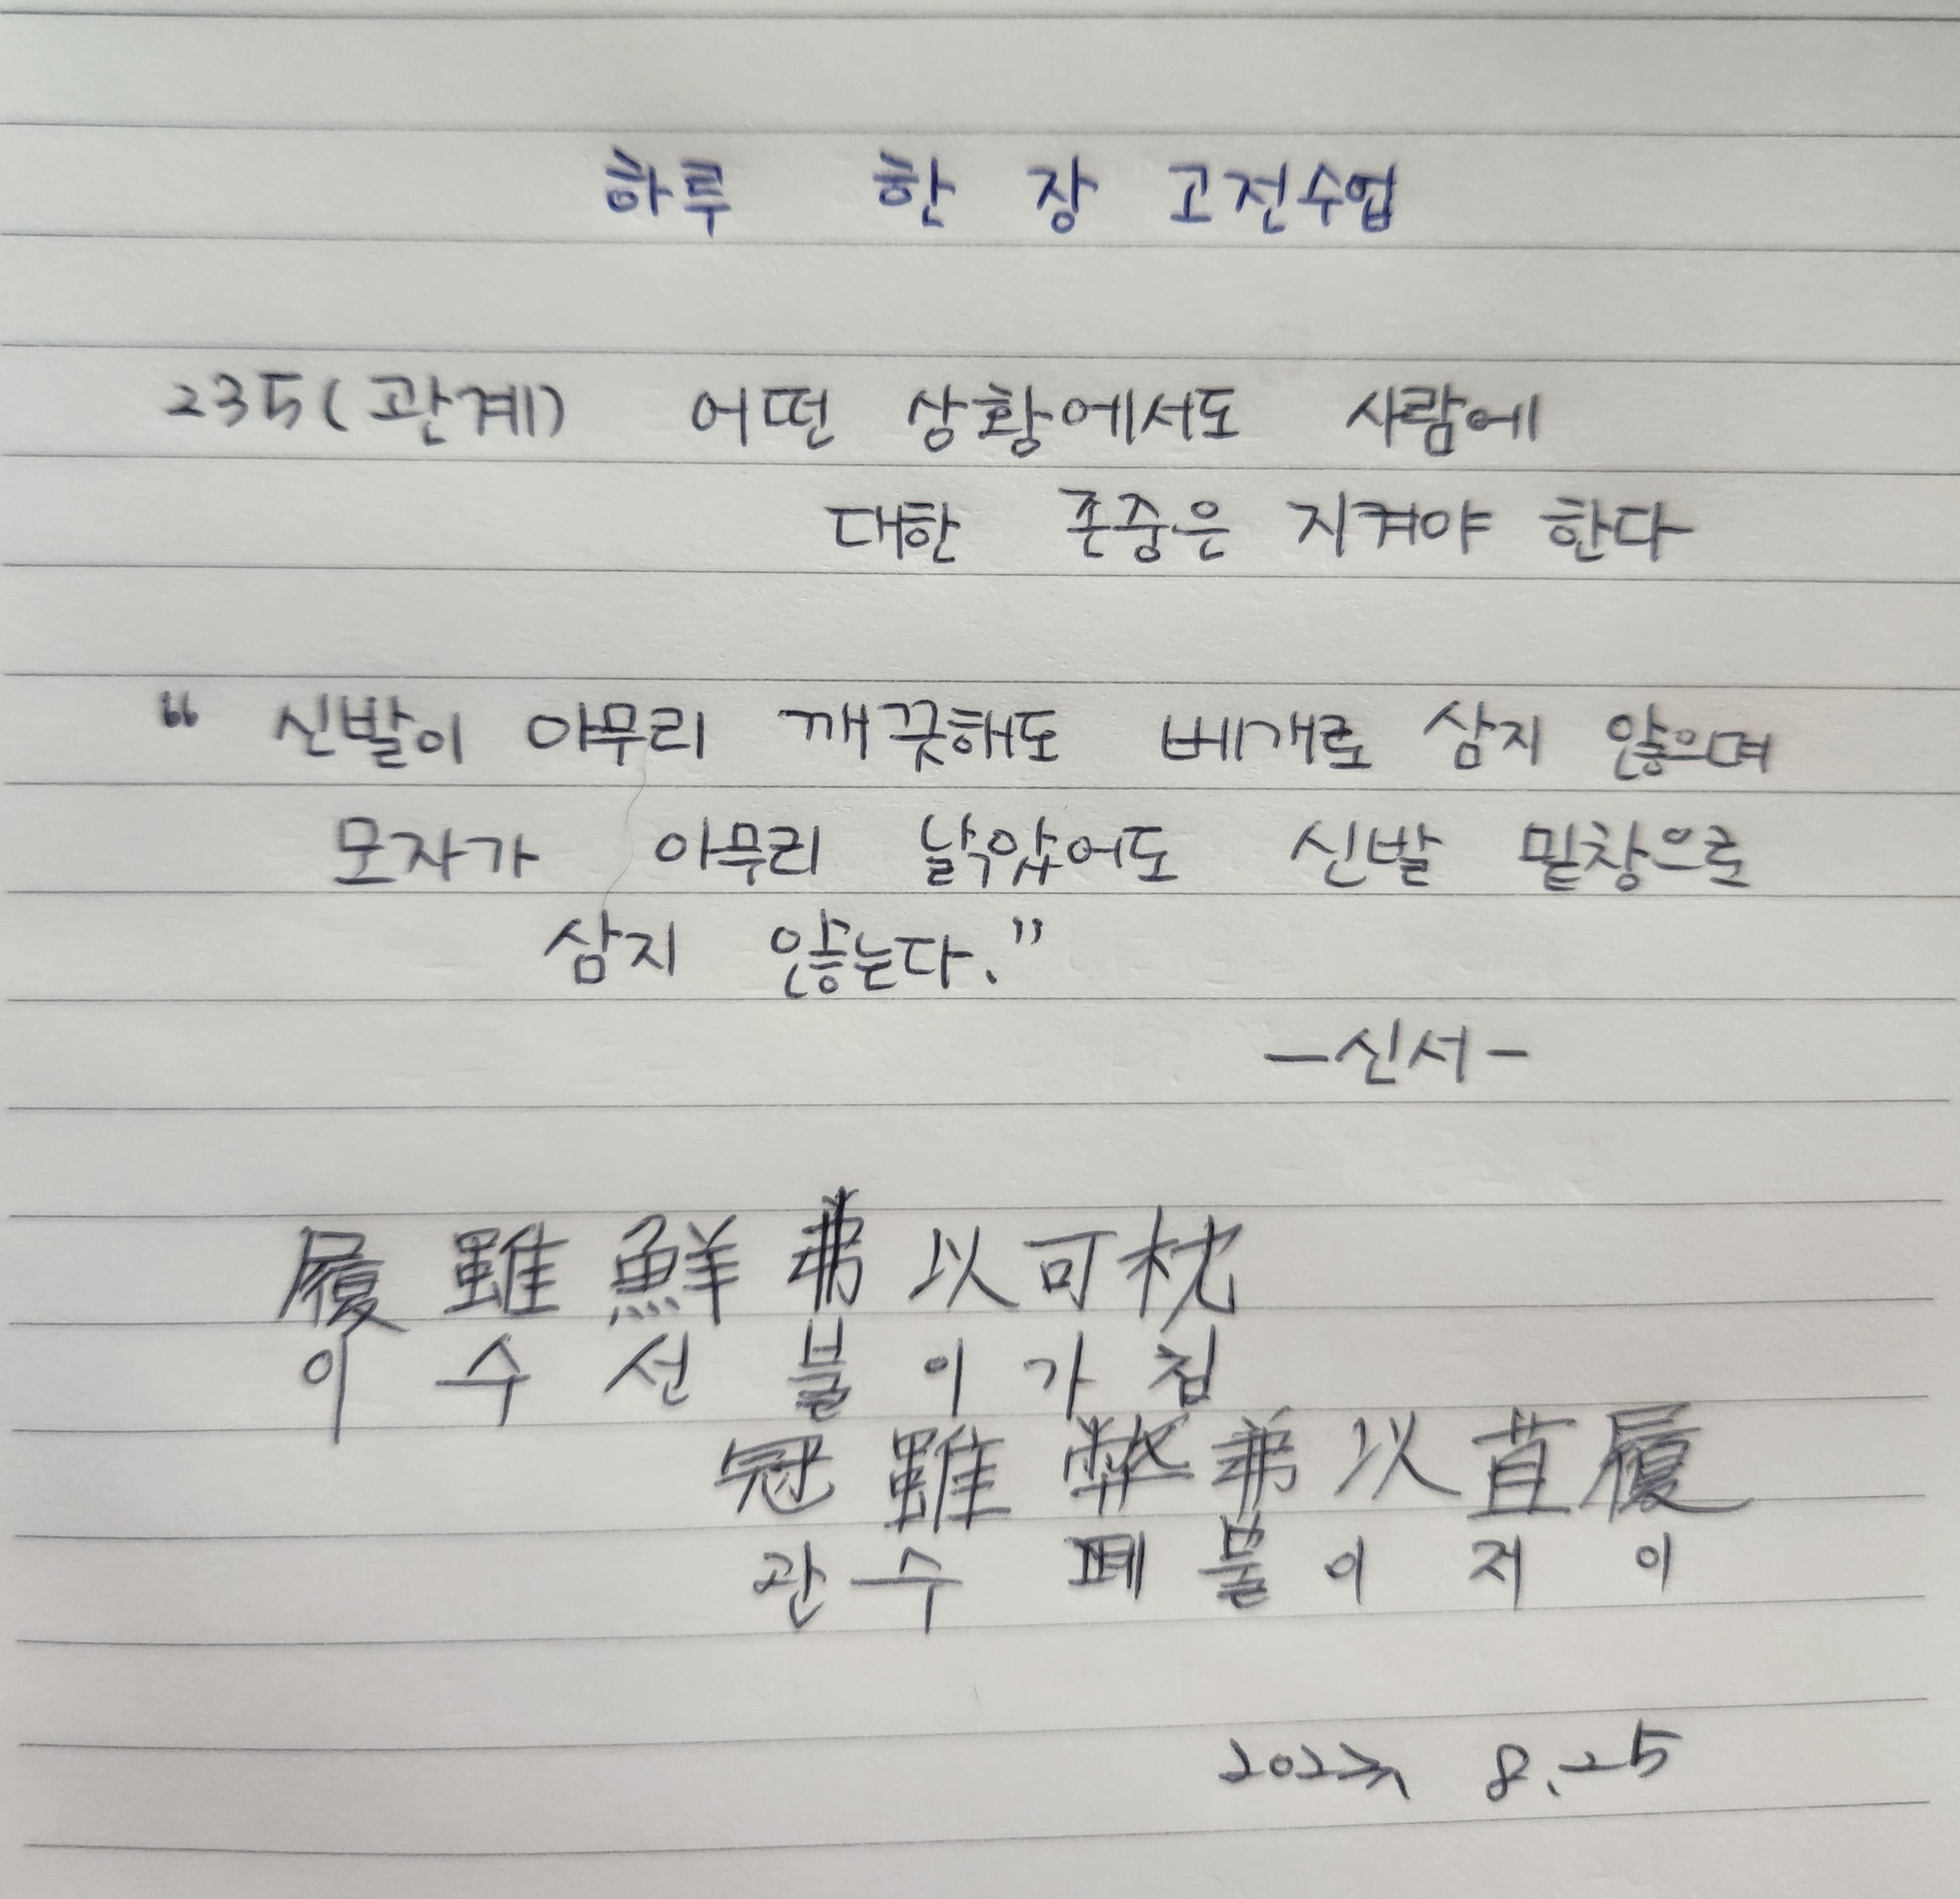 하루 한 장 고전수업
235(관계) 어떤 상황에서도 사람에
대한 존중은 지켜야 한다
“ 신발이 아무리 깨끗해도 베개로 삼지 않으며
모자가 아무리 낡았어도 신발 밑창으로
삼지 않는다.”
-신서-
履雖鮮弗以可枕
이수선불이가침
冠雖弊弗以苴履
관수폐불이저이
8.25